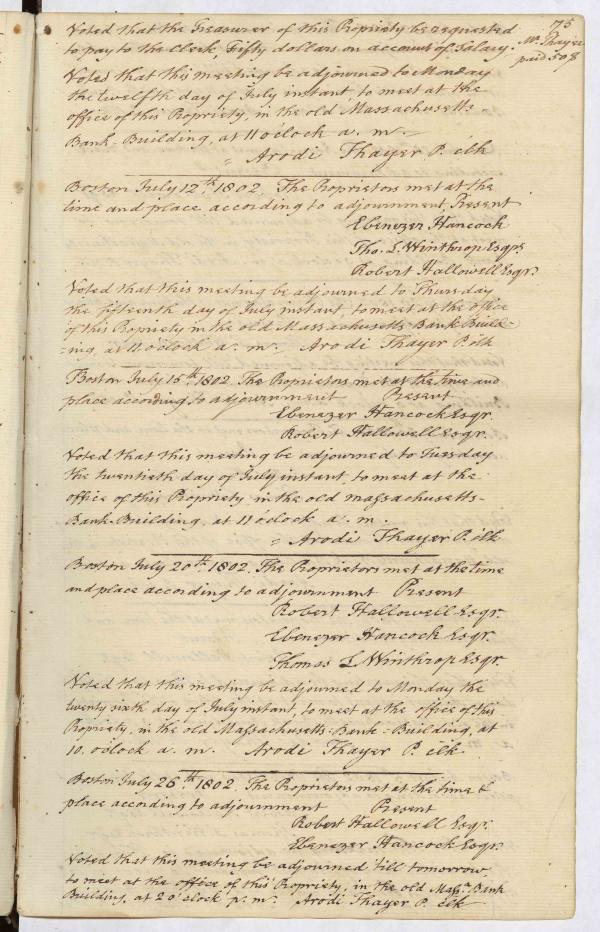 175
Voted that the Treasurer of this Propriety be requested
to pay to the Clerk, Fifty dollars on account of Salary.
Mr. Thayer
paid 50$
Voted that this meeting be adjourned to Monday
the twelfth day of July instant to meet at the
office of this Propriety, in the old Massachusetts-
Bank-Building, at 11 o'clock a. m.
Arodi Thayer P. Clk
Boston July 12th. 1802. The Proprietors met at the
time and place according to adjournment, Present
Ebenezer Hancock
Tho. L. Winthrop Esqrs
Robert Hallowell Esqr.
Voted that this meeting be adjourned to Thursday
the fifteenth day of July instant, to meet at the office
of this Propriety in the old Massachusetts Bank Build=
=ing at 11 o'clock a. m. Arodi Thayer P. Clk
Boston July 15th. 1802. The Proprietors met at the time and
place according to adjournment Present
Ebenezer Hancock Esqr.
Robert Hallowell Esqr.
Voted that this meeting be adjourned to Tuesday
the twentieth day of July instant, to meet at the
office of this Propriety in the old massachusetts-
Bank-Building, at 11 o'clock a. m.
= Arodi Thayer P. Clk
Boston July 20th. 1802. The Proprietors met at the time
and place according to adjournment Present
Robert Hallowell Esqr.
Ebenezer Hancock Esqr.
Thomas L Winthrop Esqr.
Voted that this meeting be adjourned to Monday the
twenty sixth day of July instant, to meet at the office of this
Propriety, in the old Massachusetts-Bank-Building, at
10. o'clock a. m. Arodi Thayer P. Clk.
Boston July 26th. 1802. The Proprietors met at the time &
place according to adjournment Present
Robert Hallowell Esqr.
Ebenezer Hancock Esqr.
Voted that this meeting be adjourned till tomorrow,
to meet at the office of this Propriety, in the old Massa. Bank
Building, at 2 o'clock p. m. Arodi Thayer P. Clk